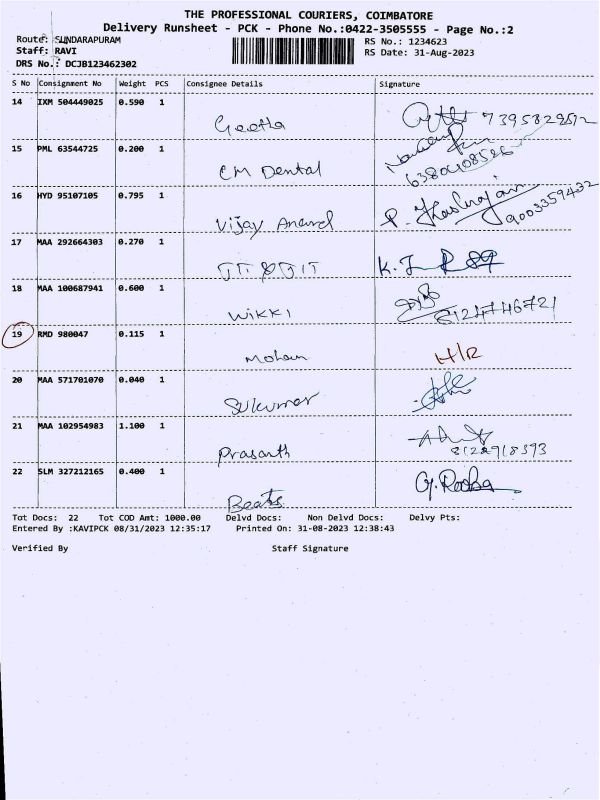 THE PROFESSIONAL COURIERS, COIMBATORE
Delivery Runsheet - PCK - Phone No.:0422-3505555 - Page No.:2
Route: SUNDARAPURAM
RS No.: 1234623
Staff: RAVI
RS Date: 31-Aug-2023
DRS No.: DCJB123462302
S No Consignment No Weight PCS Consignee Details Signature
14 IXM 504449025 0.590 1
Geetha 7395829512
15 PML 63544725 0.200 1
CM Dental
16 HYD 95107105 0.795 1
Vijay Anand 9003359432
17 MAA 292664303 0.270 1
18 MAA 100687941 0.600 1
Wikki 8124746721
19 RMD 980047 0.115 1
Mohan H/R
20 MAA 571701070 0.040 1
Sukumar
21 MAA 102954983 1.100 1
Prasanth
22 SLM 327212165 0.400 1
Beats
Tot Docs: 22 Tot COD Amt: 1000.00 Delvd Docs: Non Delvd Docs: Delvy Pts:
Entered By :KAVIPCK 08/31/2023 12:35:17 Printed On: 31-08-2023 12:38:43
Verified By Staff Signature